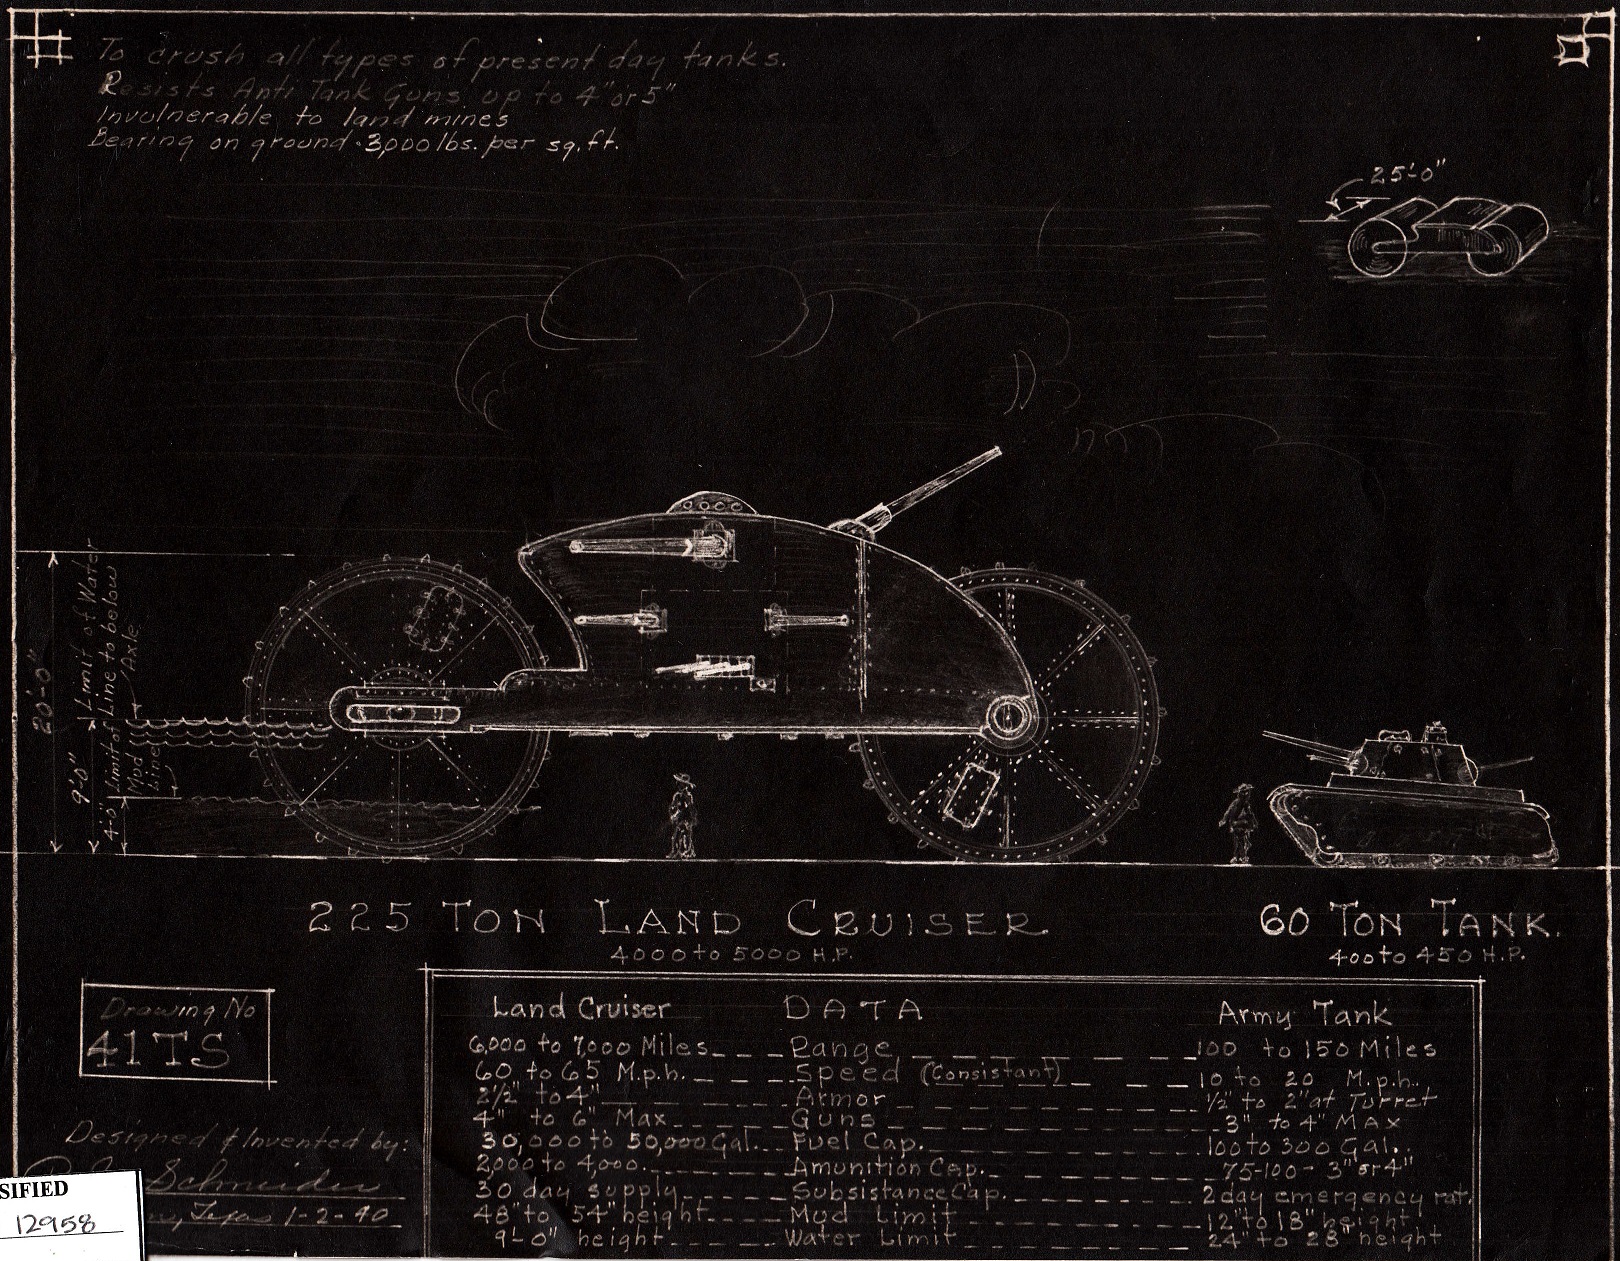 To crush all types of present day tanks.
Resists Anti Tank Guns up to 4" or 5"
Invulnerable to land mines
Bearing on ground - 3,000 lbs. per sq. ft.
25'-0"
20'-0"
9'-0"
Limit of Water
Line to below
Axle
4'-0" Limit of
Mud
Line
225 TON LAND CRUISER
4000 to 5000 H.P.
60 TON TANK.
400 to 450 H.P.
Drawing No
41TS
Designed & Invented by:
Schneider
Texas 1-2-40
SIFIED
12958
Land Cruiser DATA Army Tank
6,000 to 7,000 Miles Range 100 to 150 Miles
60 to 65 M.p.h. Speed (Consistant) 10 to 20 M.p.h.
2½" to 4" Armor ½" to 2" at Turret
4" to 6" Max Guns 3" to 4" MAX
30,000 to 50,000 Gal. Fuel Cap. 100 to 300 Gal.
2,000 to 4,000 Amunition Cap. 75-100 - 3" or 4"
30 day supply Subsistance Cap. 2 day emergency rat.
48" to 54" height Mud Limit 12" to 18" height
9'-0" height Water Limit 24" to 28" height